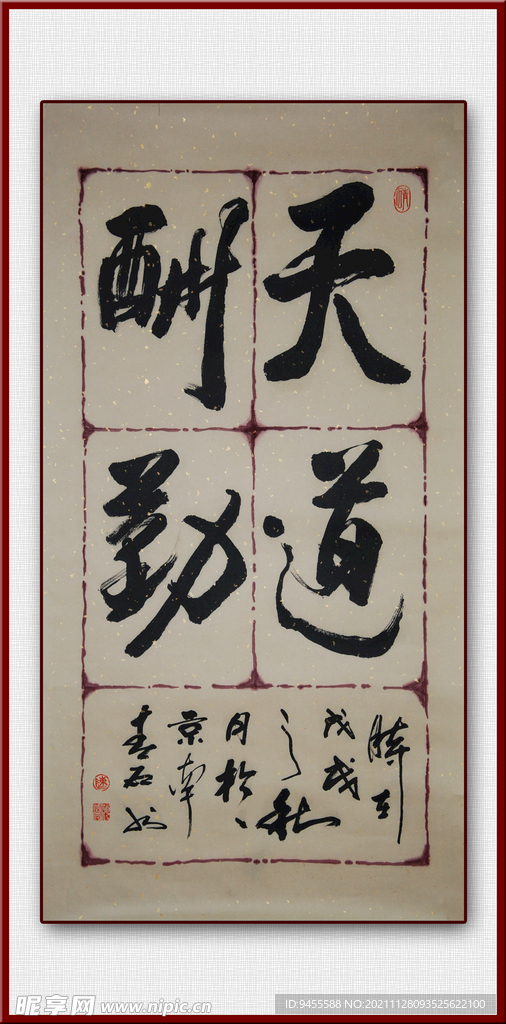 天道
酬勤
戊戌
之秋
月於
京南
昵享网 www.nipic.cn
ID:9455588 NO:20211128093525622100